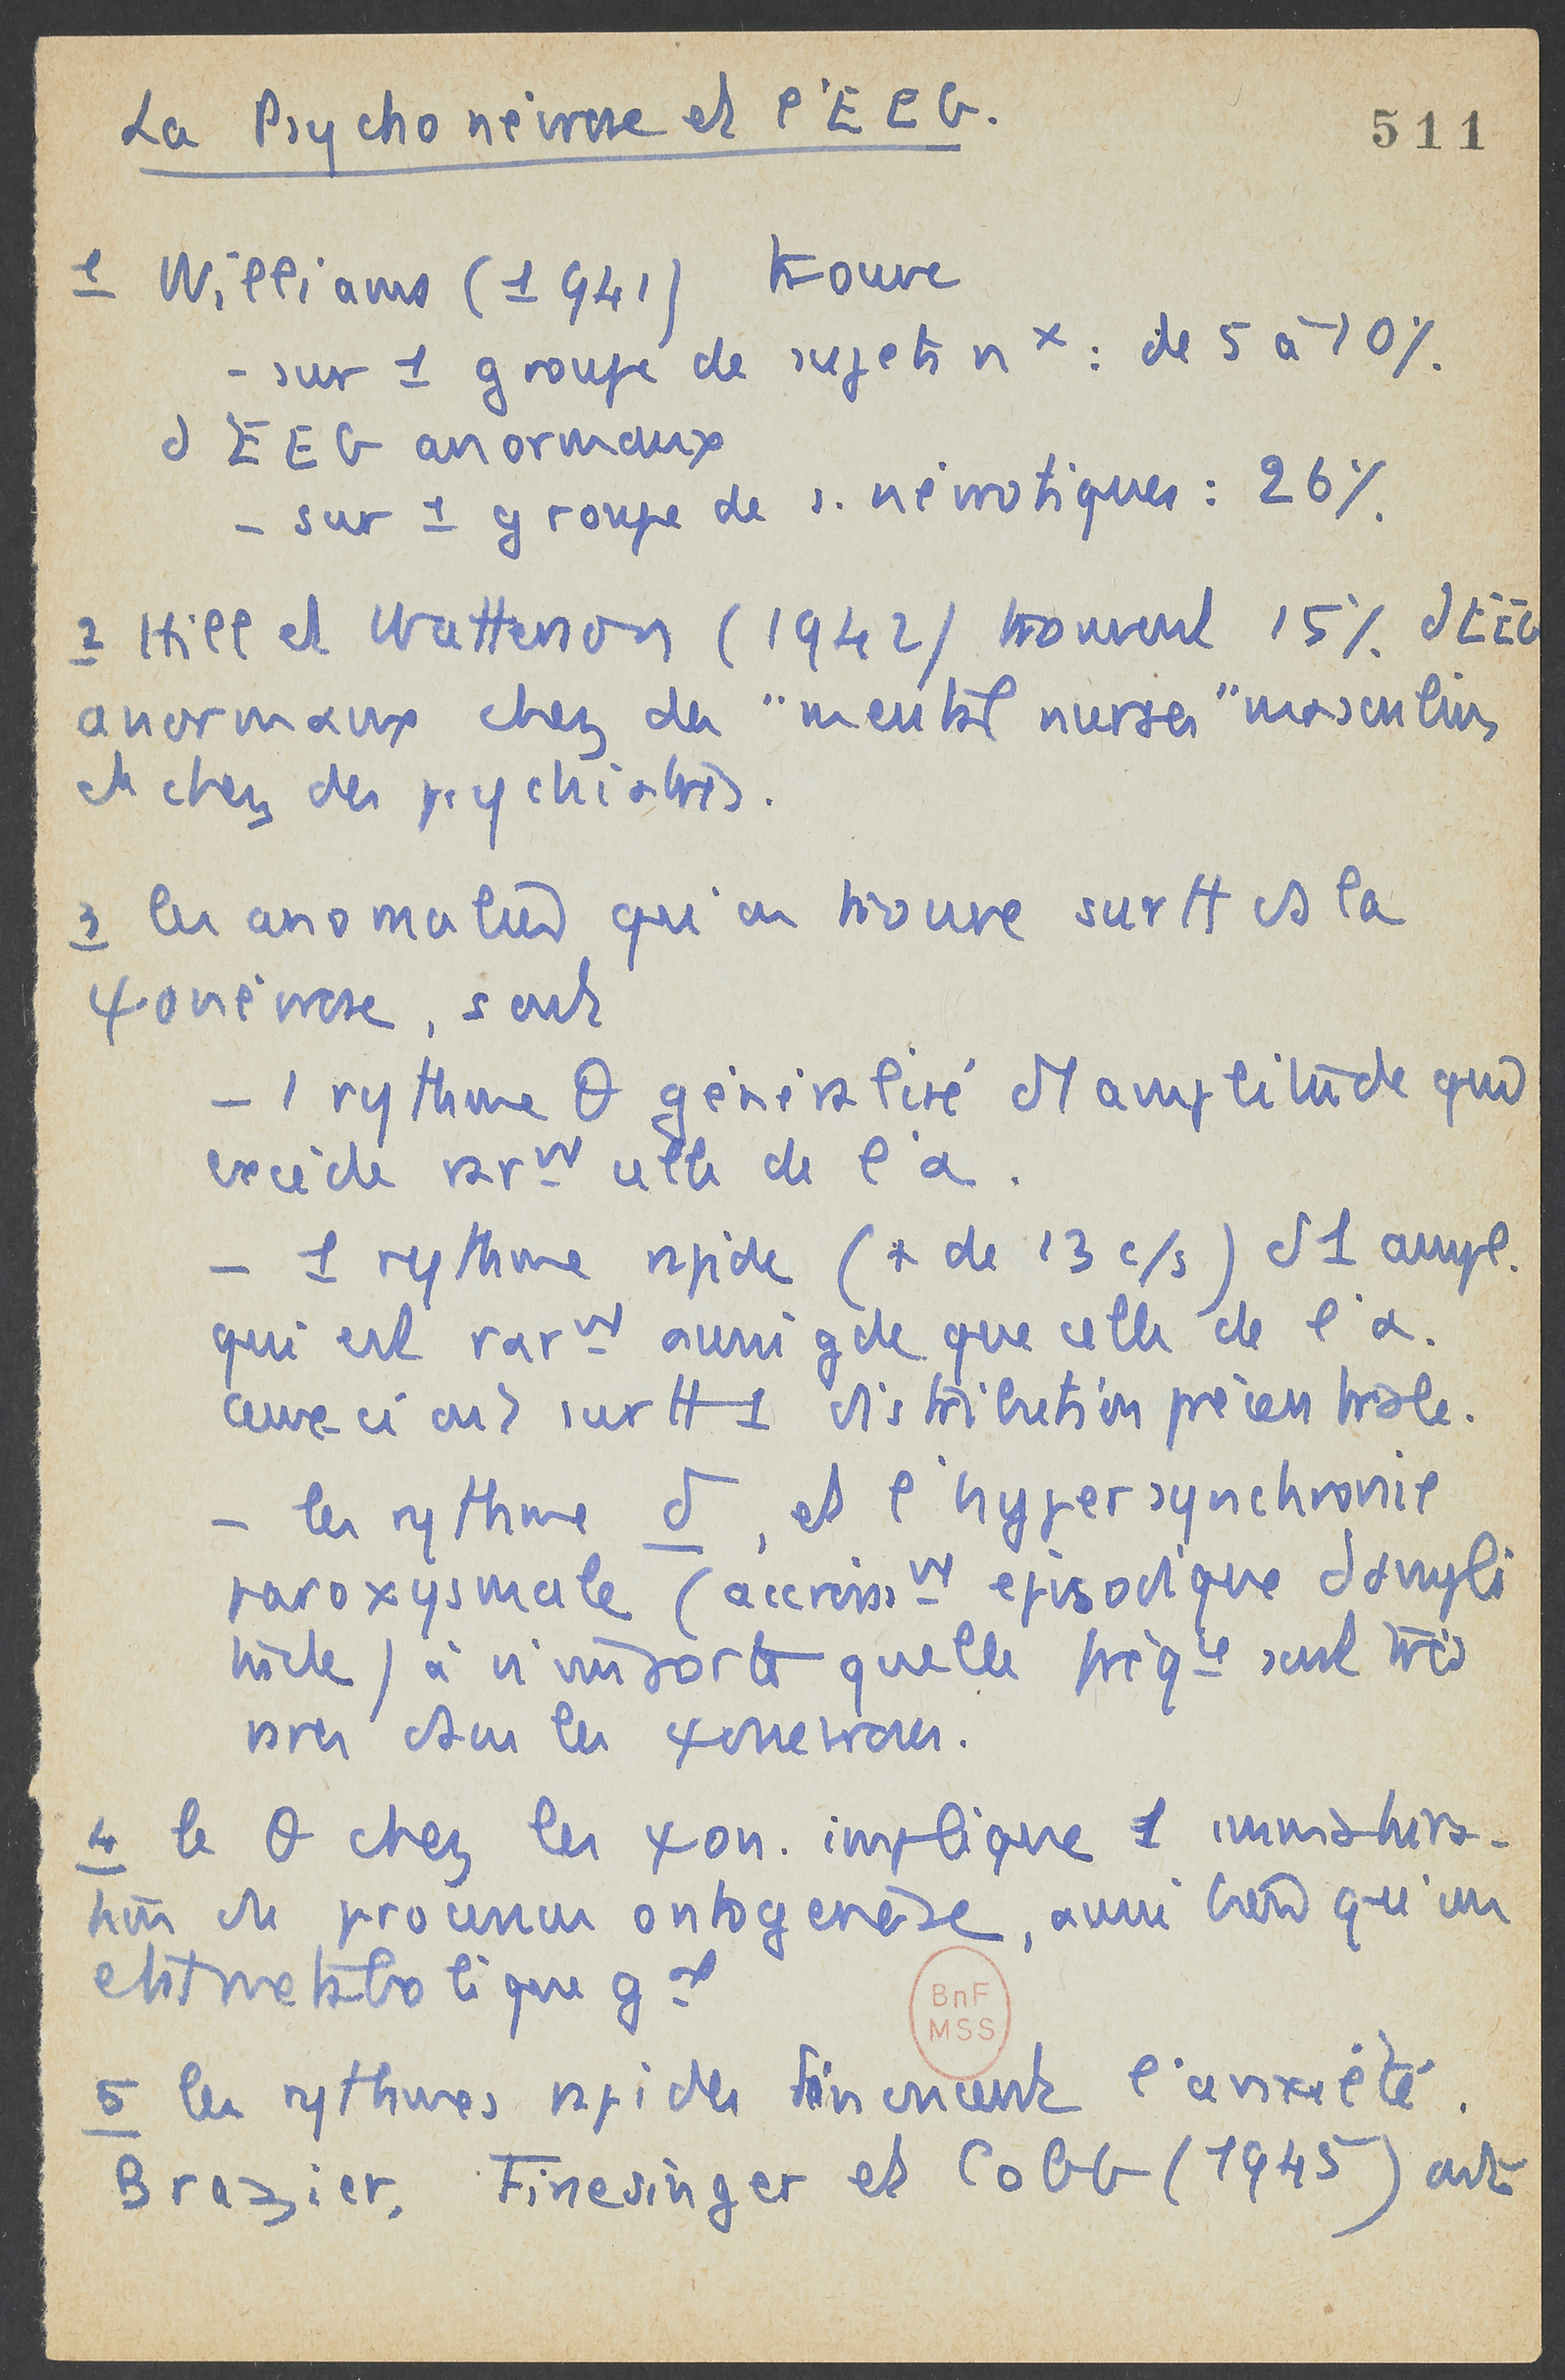 La Psychonévrose et l'EEG.
511
1 Williams (1941) trouve
- sur 1 groupe de sujets nx : de 5 à 10%
d'EEG anormaux
- sur 1 groupe de s. névrotiques : 26%
2 Hill et Watterson (1942) trouvent 15% d'EEG
anormaux chez des "mental nurses" masculins
et chez des psychiatres.
3 les anomalies qu'on trouve surtt ds la
ψonévrose, sont
- 1 rythme θ généralisé d'1 amplitude qui
excède rarnt celle de l'α.
- 1 rythme rapide (+ de 13 c/s) d'1 ampl.
qui est rarnt aussi gde que celle de l'α.
ceux-ci ont surtt 1 distribution précentrale.
- les rythme δ, et l'hypersynchronie
paroxysmale (accroisst épisodique d'ampli
tude) à n'importe quelle fréqce sont très
rares dans les ψonévroses.
4 le θ chez les ψon. implique 1 immatura-
tion de processus ontogenèse, aussi bien qu'un
état métabolique gal
BnF
MSS
5 les rythmes rapides dénoncent l'anxiété.
Brazier, Finesinger et Cobb (1945) ont